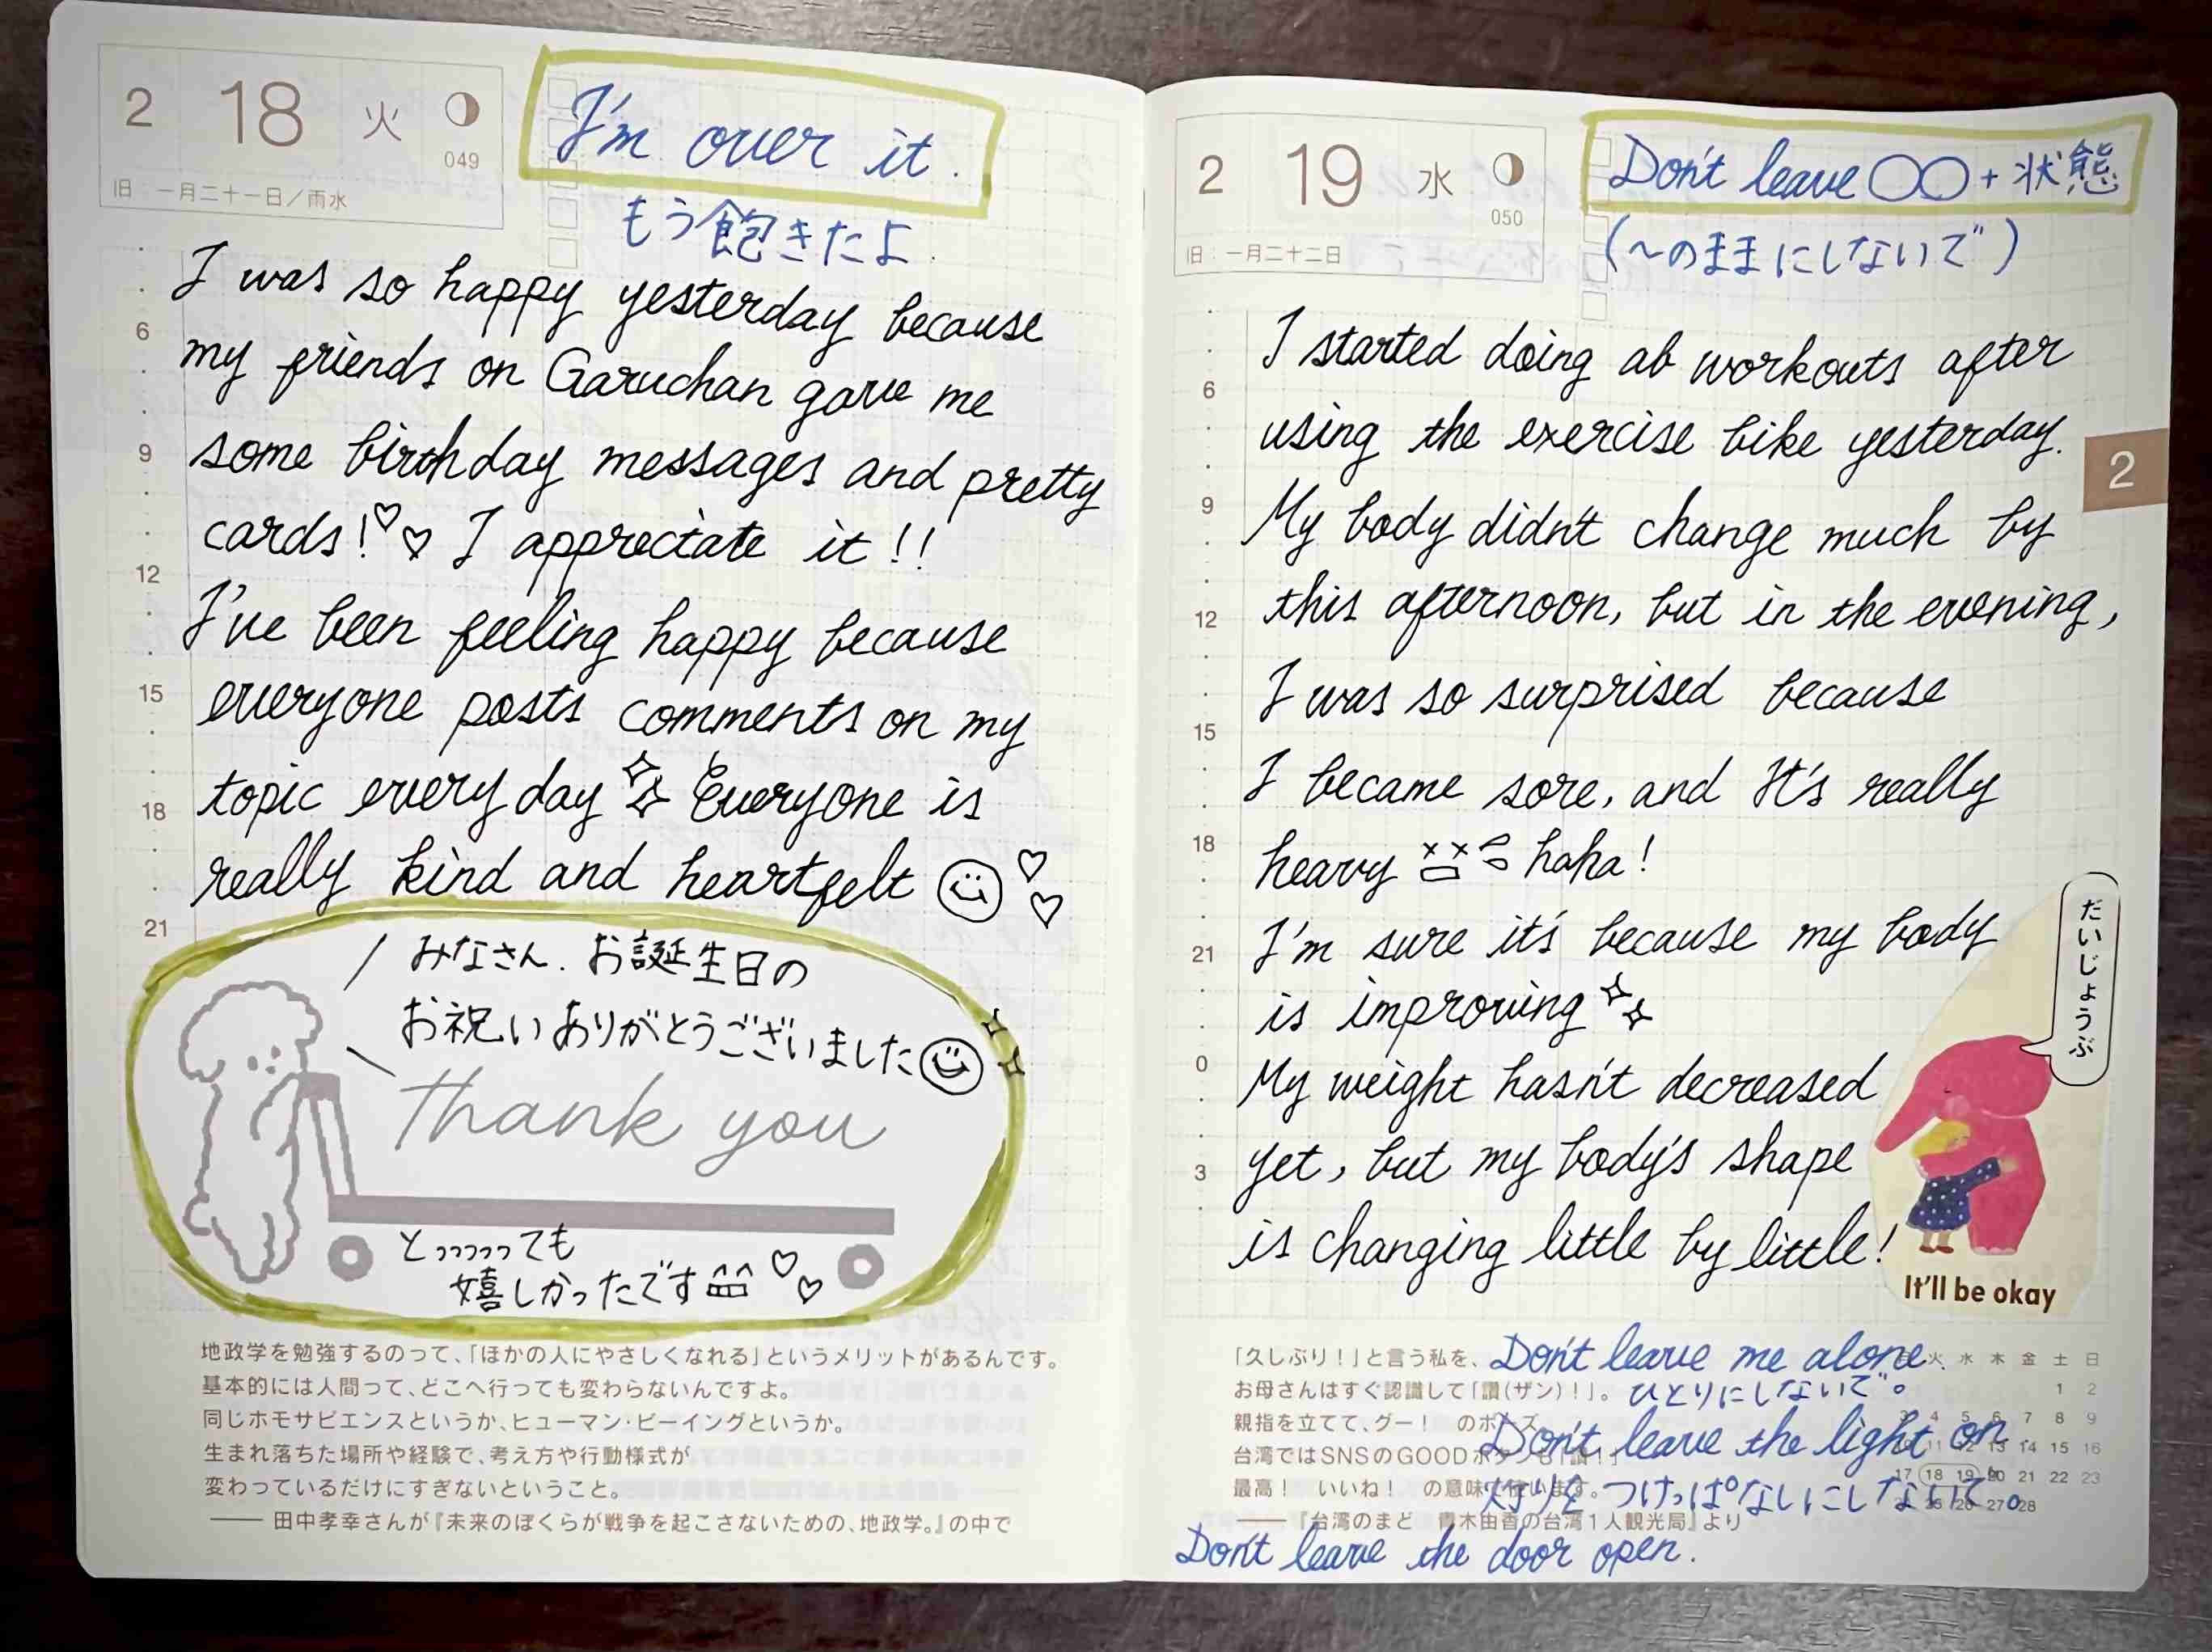 2 18 火
049
旧:一月二十一日/雨水
I'm over it.
もう飽きたよ.
I was so happy yesterday because
my friends on Garuchan gave me
some birthday messages and pretty
cards!♡♡ I appreciate it!!
I've been feeling happy because
everyone posts comments on my
topic every day Everyone is
really kind and heartfelt ☺♡♡
6
9
12
15
18
21
みなさん、お誕生日の
お祝いありがとうございました☺
Thank you
とっっっっっても
嬉しかったです ♡♡
地政学を勉強するのって、「ほかの人にやさしくなれる」というメリットがあるんです。
基本的には人間って、どこへ行っても変わらないんですよ。
同じホモサピエンスというか、ヒューマン・ビーイングというか。
生まれ落ちた場所や経験で、考え方や行動様式が
変わっているだけにすぎないということ。
―― 田中孝幸さんが『未来のぼくらが戦争を起こさないための、地政学。』の中で
2 19 水
050
旧:一月二十二日
Don't leave ○○+状態
(〜のままにしないで)
I started doing ab workouts after
using the exercise bike yesterday.
My body didn't change much by
this afternoon, but in the evening,
I was so surprised because
I became sore, and It's really
heavy haha!
I'm sure it's because my body
is improving
My weight hasn't decreased
yet, but my body's shape
is changing little by little!
6
9
12
15
18
21
0
3
2
だいじょうぶ
It'll be okay
「久しぶり!」と言う私を、
お母さんはすぐ認識して「讃(ザン)!」。
親指を立てて、グー! のポーズ
台湾ではSNSのGOODボタンも「讃!」
最高! いいね! の意味で使います。
―― 『台湾のまど 青木由香の台湾1人観光局』より
火 水 木 金 土 日
1 2
4 5 6 7 8 9
11 12 13 14 15 16
17 18 19 20 21 22 23
25 26 27 28
Don't leave me alone.
ひとりにしないで。
Don't leave the light on.
灯りを つけっぱなしにしないで。
Don't leave the door open.